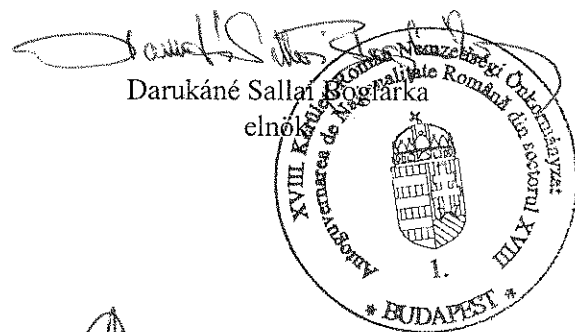 Darukáné Sallai Boglárka
elnök
XVIII. Kerületi Román Nemzetiségi Önkormányzat
Autoguvernarea de Naționalitate Română din sectorul XVIII
1.
* BUDAPEST *